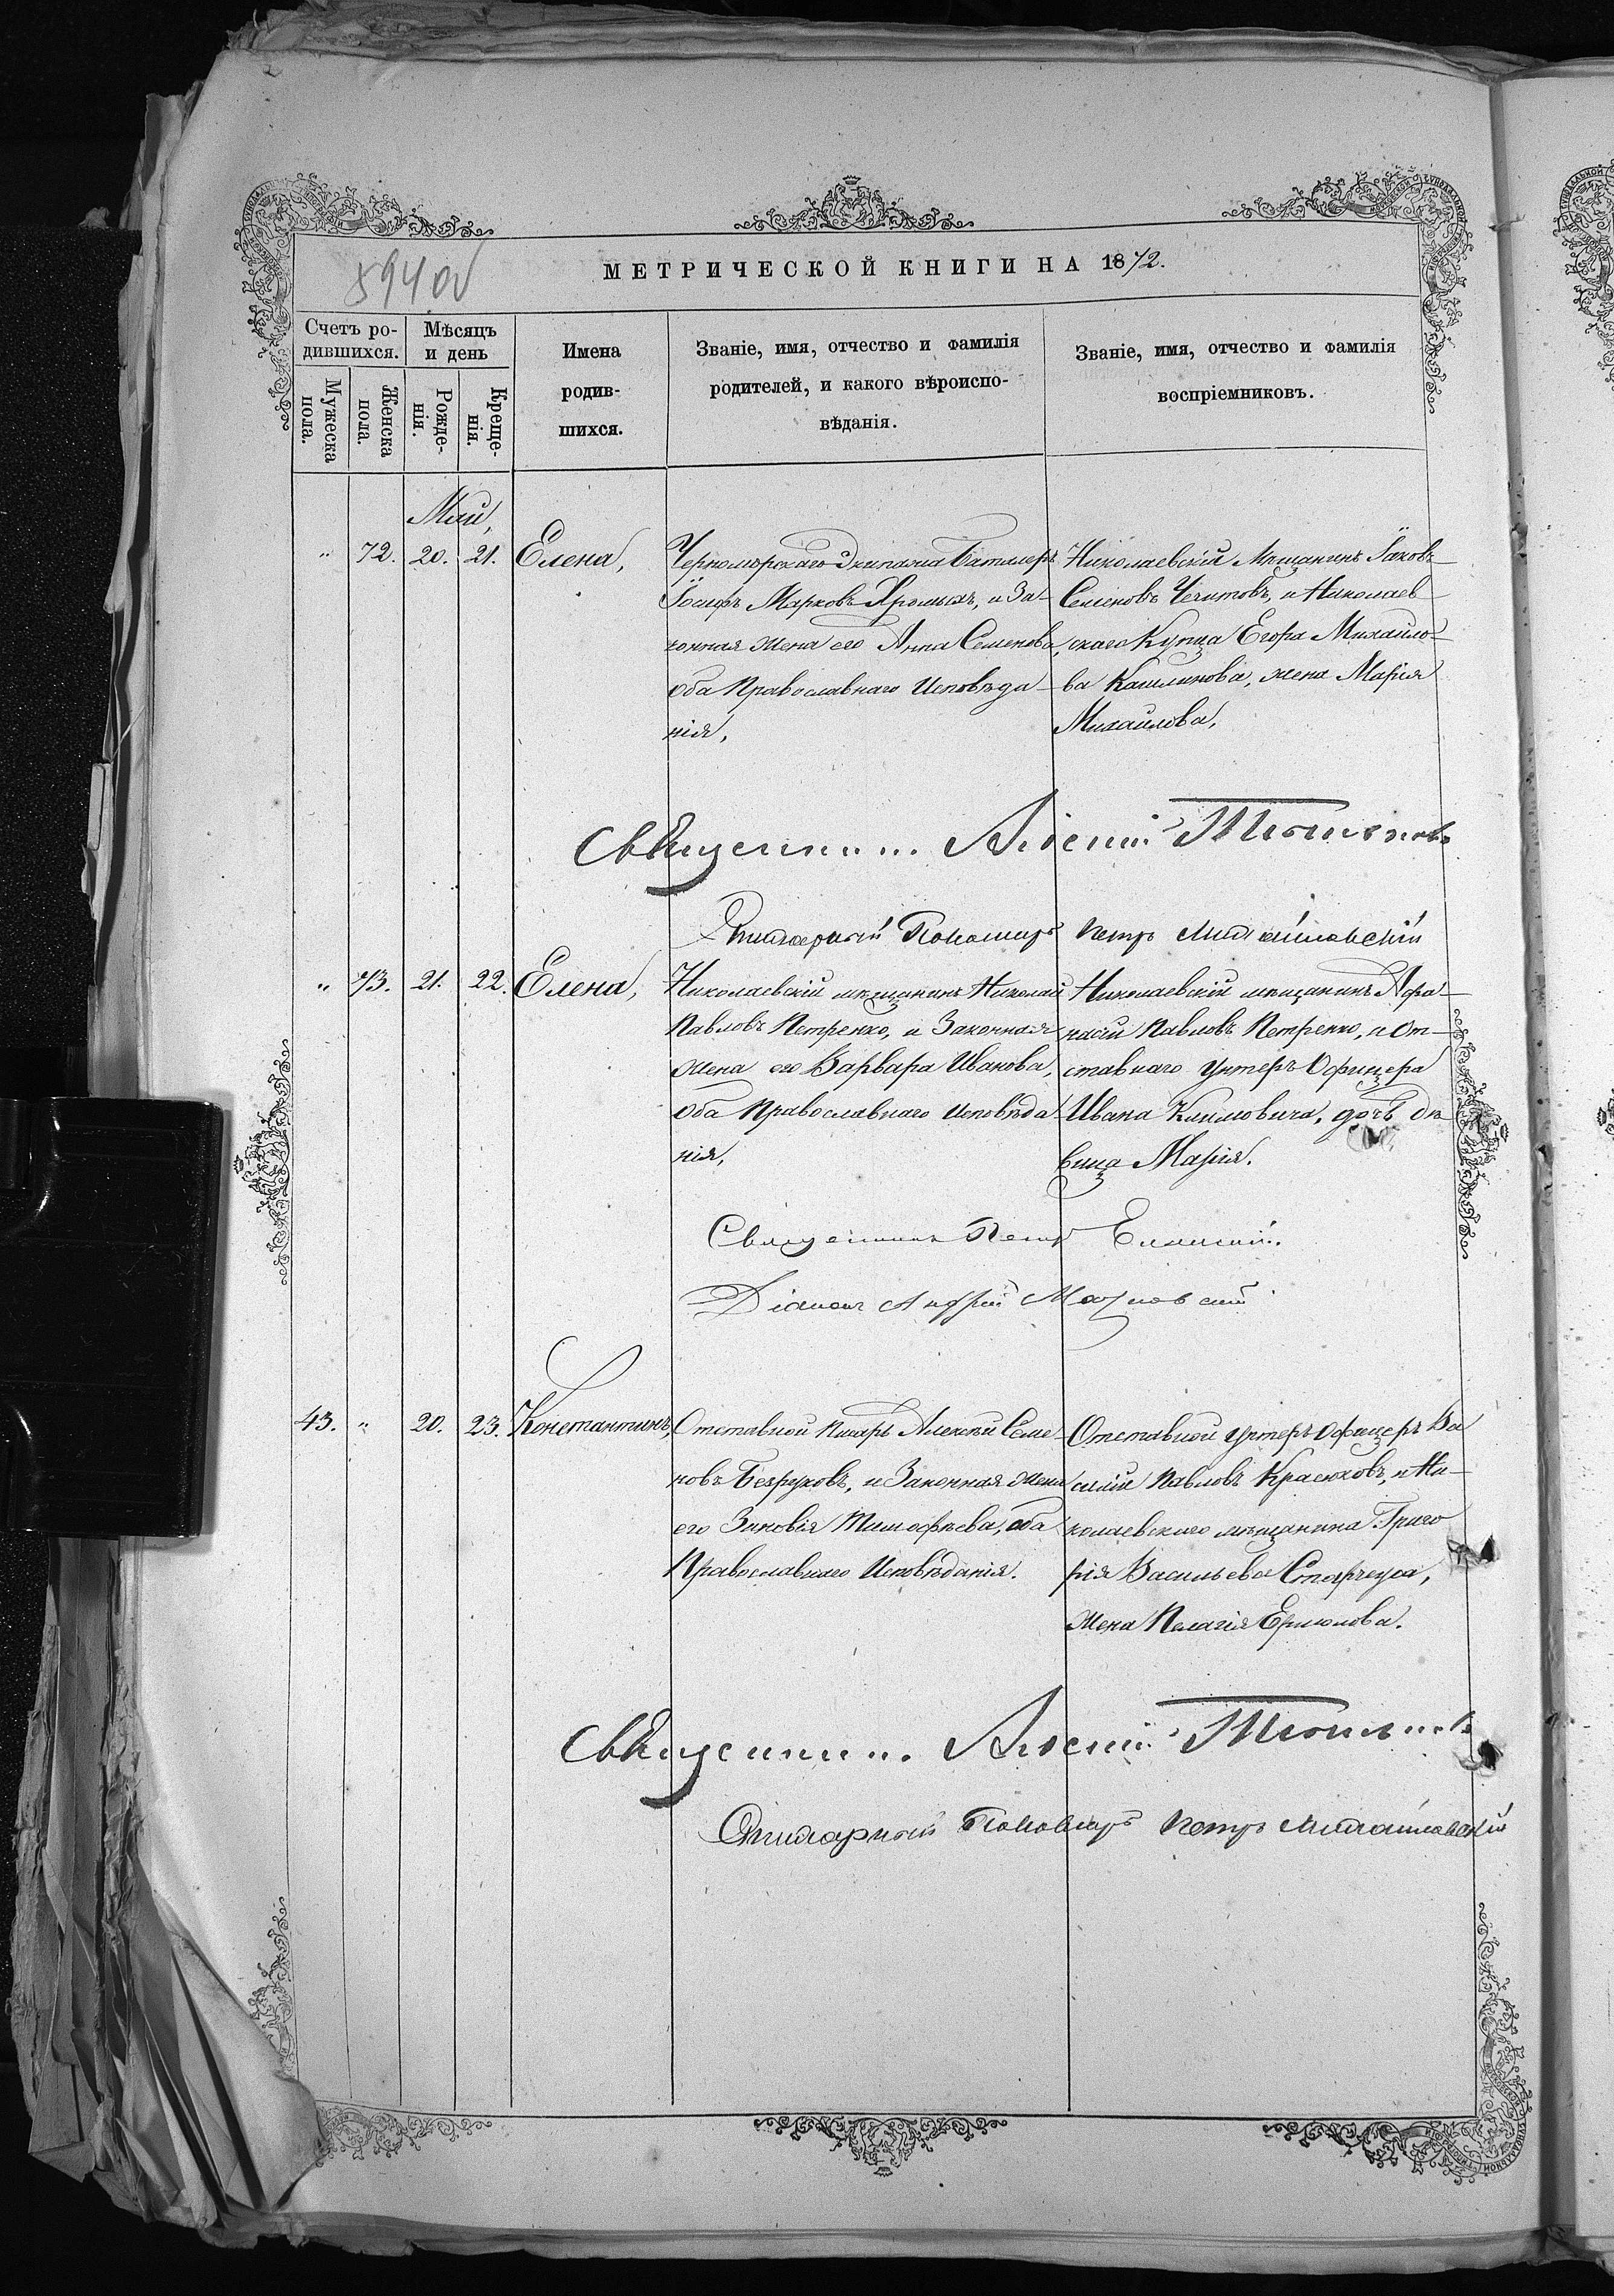 594 об
МЕТРИЧЕСКОЙ КНИГИ НА 1872.
Счетъ ро-
дившихся.
Мужеска
пола.
Женска
пола.
Мѣсяцъ
и день
Рожде-
нія.
Креще-
нія.
Имена
родив-
шихся.
Званіе, имя, отчество и фамилія
родителей, и какого вѣроиспо-
вѣданія.
Званіе, имя, отчество и фамилія
воспріемниковъ.
Май,
" 72. 20. 21. Елена,
Черноморскаго Экипажа Баталеръ
Іосифъ Марковъ Хромыхъ, и За-
конная жена его Анна Семенова,
оба Православнаго Исповѣда-
нія,
Николаевскій Мѣщанинъ Іаковъ
Семеновъ Чечитовъ, и Николаев-
скаго Купца Егора Михайло-
ва Кашлинова, жена Марія
Михайлова,
Священникъ
Пономарь Петръ
" 73. 21. 22. Елена,
Николаевскій мѣщанинъ Николай
Павловъ Петренко, и Законная
жена его Варвара Иванова,
Оба Православнаго Исповѣда-
нія,
Николаевскій мѣщанинъ Афа-
насій Павловъ Петренко, и От-
ставнаго Унтеръ-Офицера
Ивана Климовича, дочь дѣ-
вица Марія.
Священникъ Петръ
Діаконъ Андрей
43. " 20. 23. Константинъ,
Отставной Писарь Алексѣй Семе-
новъ Безруковъ, и Законная жена
его Зиновія Тимофѣева, оба
Православнаго Исповѣданія.
Отставной Унтеръ-Офицеръ Ва-
силій Павловъ Красюковъ, и Ни-
колаевскаго мѣщанина Григо-
рія Васильева Старчеуса,
жена Пелагія Ермолова.
Священникъ
Пономарь Петръ